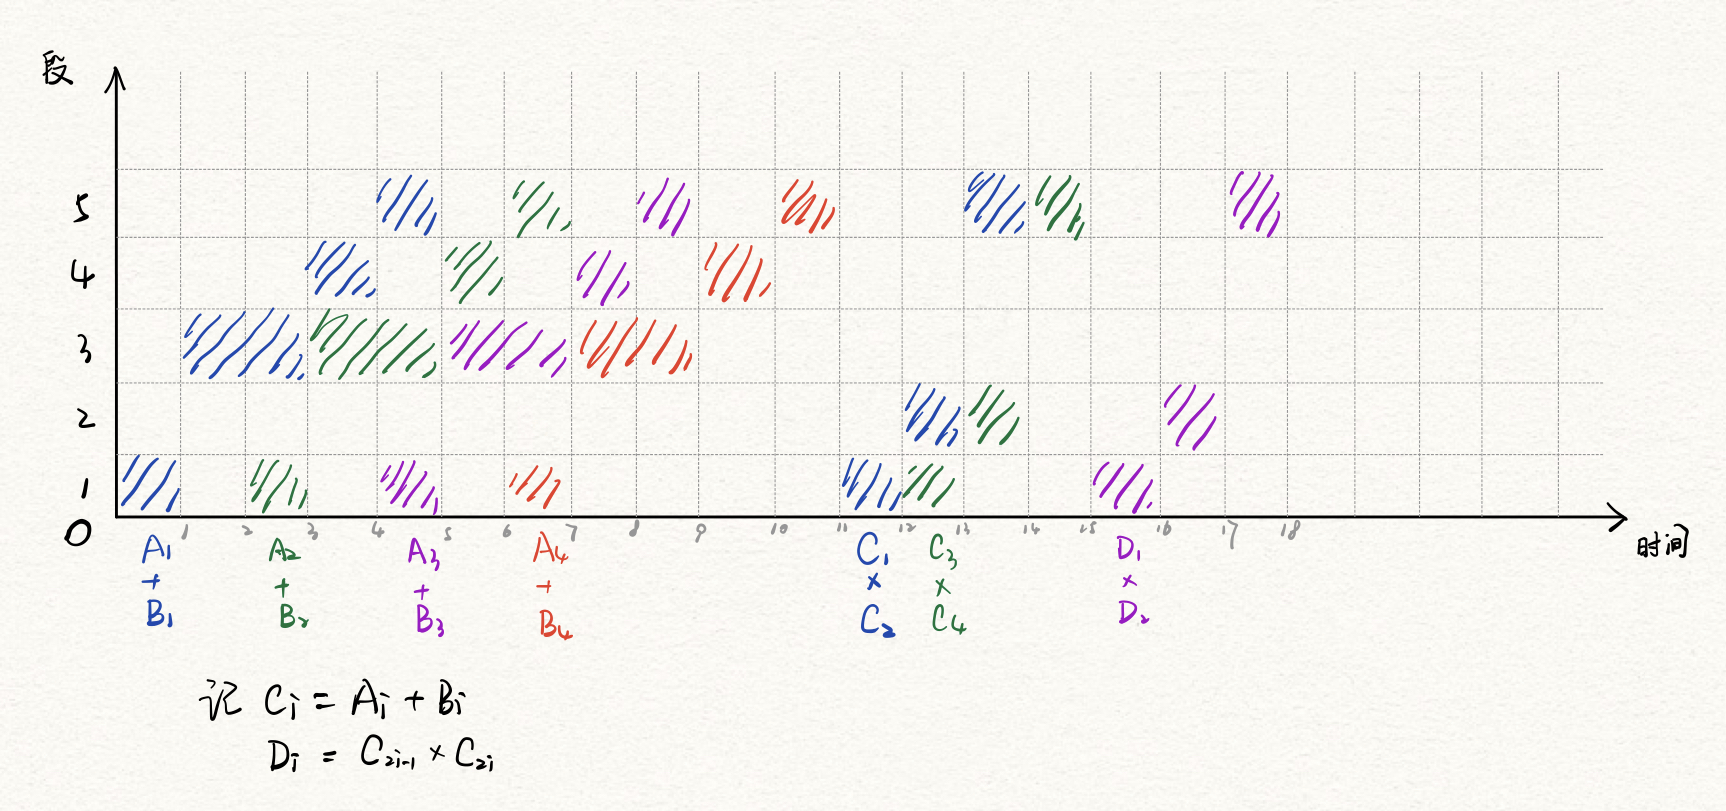 段
5
4
3
2
1
0
1 2 3 4 5 6 7 8 9 10 11 12 13 14 15 16 17 18
时间
A₁ + B₁
A₂ + B₂
A₃ + B₃
A₄ + B₄
C₁ × C₂
C₃ × C₄
D₁ × D₂
记 Cᵢ = Aᵢ + Bᵢ
Dᵢ = C₂ᵢ₋₁ × C₂ᵢ